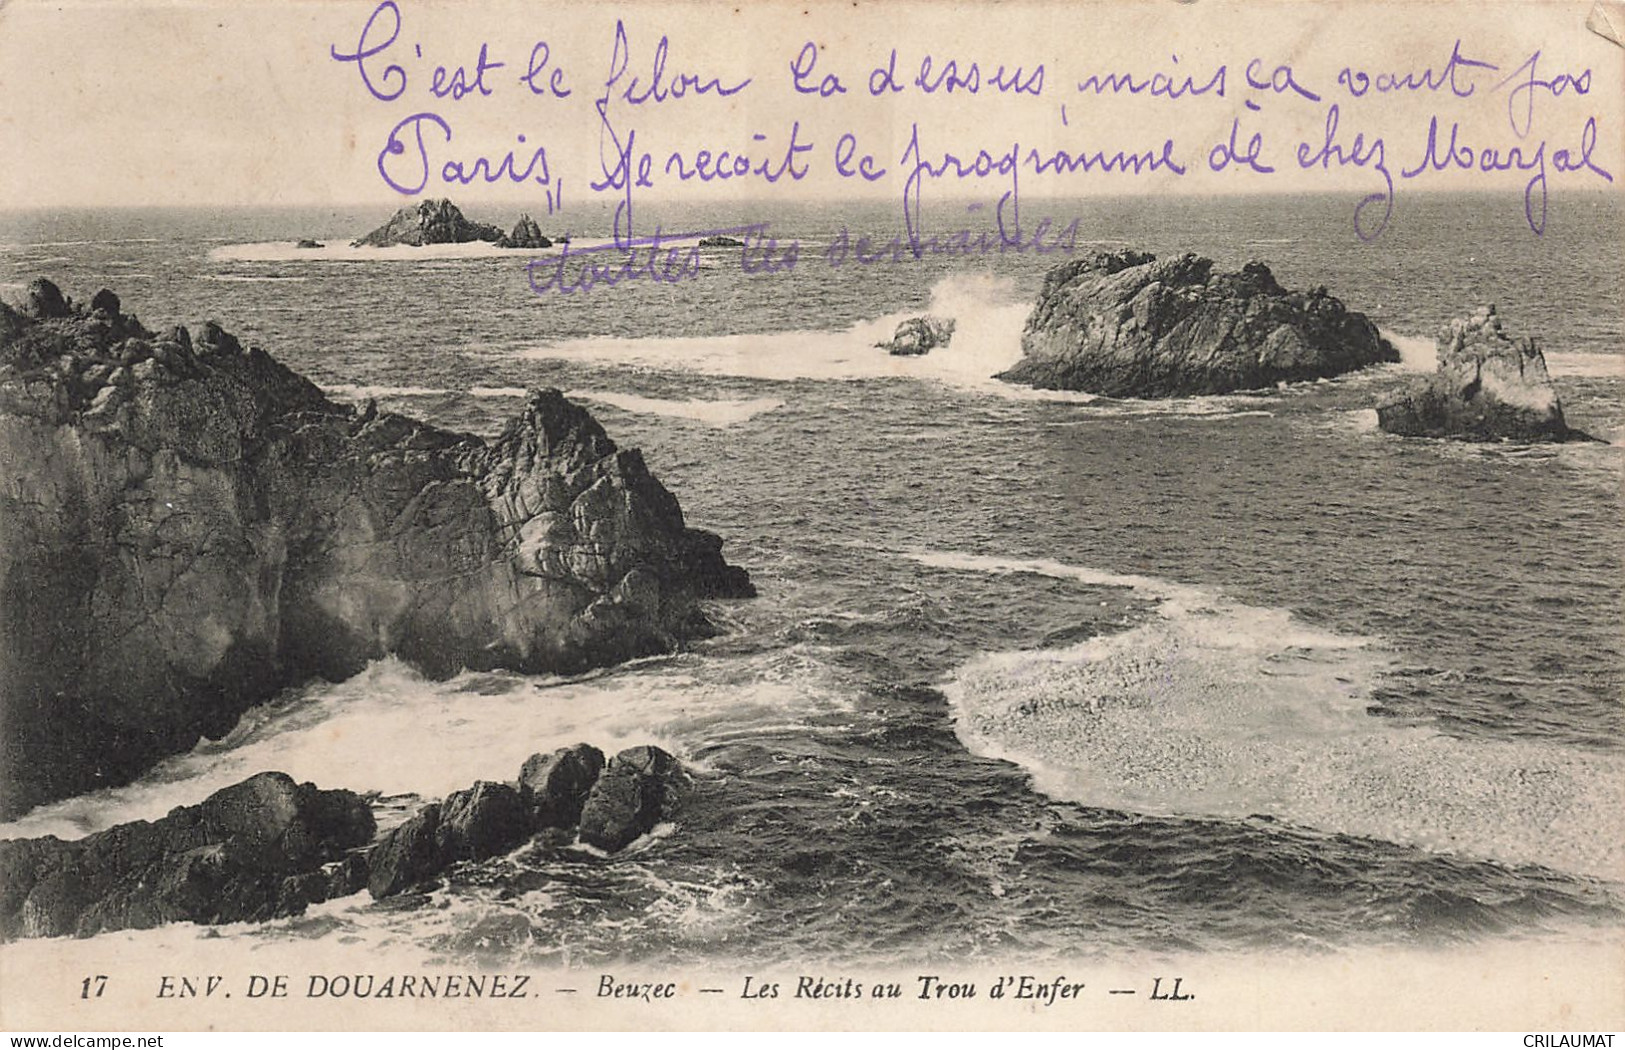 C'est le filon la dessus, mais ça vaut pas
Paris, Je recoit le programme de chez Maryal
toutes les semaines
17 ENV. DE DOUARNENEZ. — Beuzec — Les Récits au Trou d'Enfer — LL.
delcampe.net
CRILAUMAT